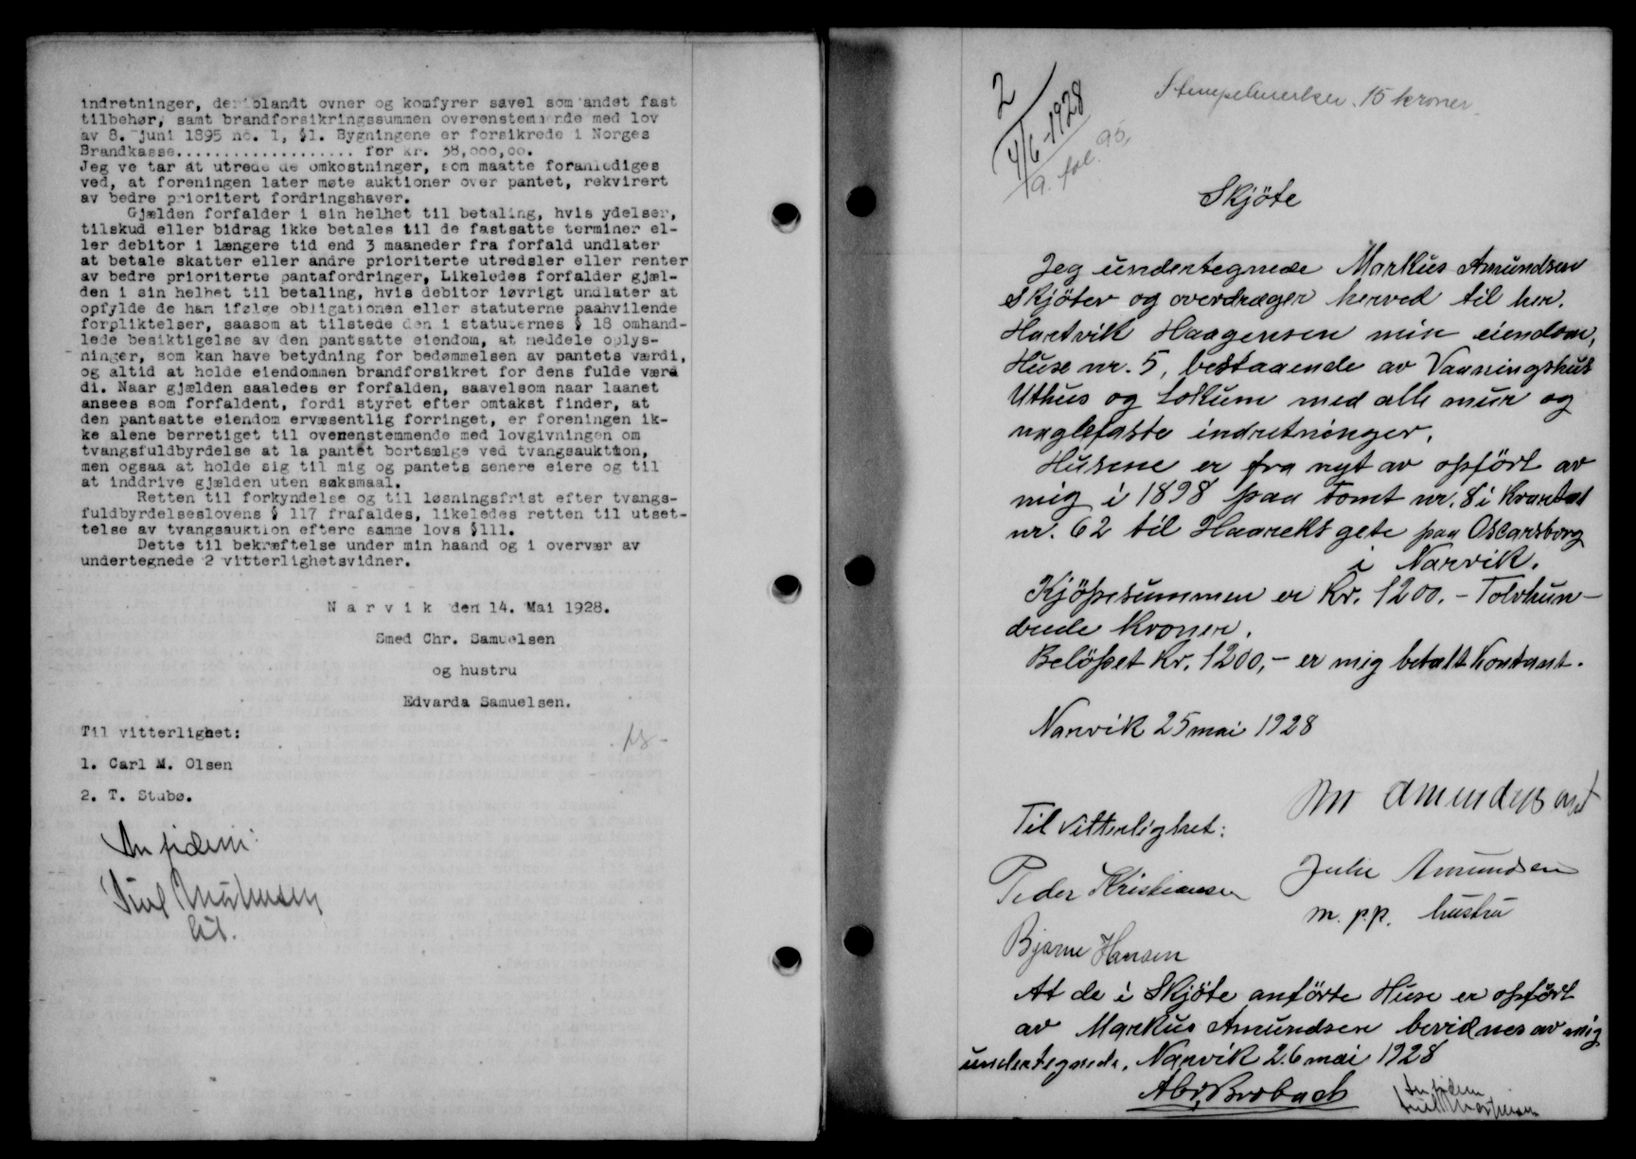 indretninger, deriblandt ovner og komfyrer savel som andet fast
tilbehør, samt brandforsikringssummen overenstemmende med lov
av 8. juni 1895 no. 1, §1. Bygningene er forsikrede i Norges
Brandkasse................... for kr. 38,000,00.
Jeg ve tar at utrede de omkostninger, som maatte foranlediges
ved, at foreningen later møte auktioner over pantet, rekvirert
av bedre prioritert fordringshaver.
Gjælden forfalder i sin helhet til betaling, hvis ydelser,
tilskud eller bidrag ikke betales til de fastsatte terminer el-
ler debitor i længere tid end 3 maaneder fra forfald undlater
at betale skatter eller andre prioriterte utredsler eller renter
av bedre prioriterte pantafordringer, Likeledes forfalder gjæl-
den i sin helhet til betaling, hvis debitor iøvrigt undlater at
opfylde de ham ifølge obligationen eller statuterne paahvilende
forpliktelser, saasom at tilstede den i statuternes § 18 omhand-
lede besiktigelse av den pantsatte eiendom, at meddele oplys-
ninger, som kan have betydning for bedømmelsen av pantets værdi,
og altid at holde eiendommen brandforsikret for dens fulde værd
di. Naar gjælden saaledes er forfalden, saavelsom naar laanet
ansees som forfaldent, fordi styret efter omtakst finder, at
den pantsatte eiendom ervæsentlig forringet, er foreningen ik-
ke alene berretiget til overenstemmende med lovgivningen om
tvangsfuldbyrdelse at la pantet bortsælge ved tvangsauktion,
men ogsaa at holde sig til mig og pantets senere eiere og til
at inddrive gjælden uten søksmaal.
Retten til forkyndelse og til løsningsfrist efter tvangs-
fuldbyrdelseslovens § 117 frafaldes, likeledes retten til utset-
telse av tvangsauktion eftere samme lovs §111.
Dette til bekræftelse under min haand og i overvær av
undertegnede 2 vitterlighetsvidner.
Narvik den 14. Mai 1928.
Smed Chr. Samuelsen
og hustru
Edvarda Samuelsen.
Til vitterlighet:
1. Carl M. Olsen
2. T. Stubø.
An fidem:
2
4/6-1928
a. fol. 95,
Stempelmerker 15 kroner
Skjöte
Jeg undertegnede Markus Amundsen
skjöter og overdrager herved til her.
Hartvik Haagensen min eiendom,
Huse nr. 5, bestaaende av Vaaningshus
Uthus og Lokum med alle mur og
naglefaste indretninger.
Husene er fra nyt av opfört av
mig i 1898 paa tomt nr. 8 i Kvartal
nr. 62 til Haareks gete paa Oscarsborg
i Narvik.
Kjöpesummen er Kr. 1200.- Tolvhun-
drede Kroner.
Belöpet Kr. 1200,- er mig betalt Kontant.
Narvik 25 mai 1928
Til Vitterlighet:
Peder Kristiansen
Julie Amundsen
m. p.p. hustru
Bjarne Hansen
At de i Skjöte anförte Huse er opfört
av Markus Amundsen bevidnes av mig
undertegnede. Narvik 26 mai 1928
An fidem